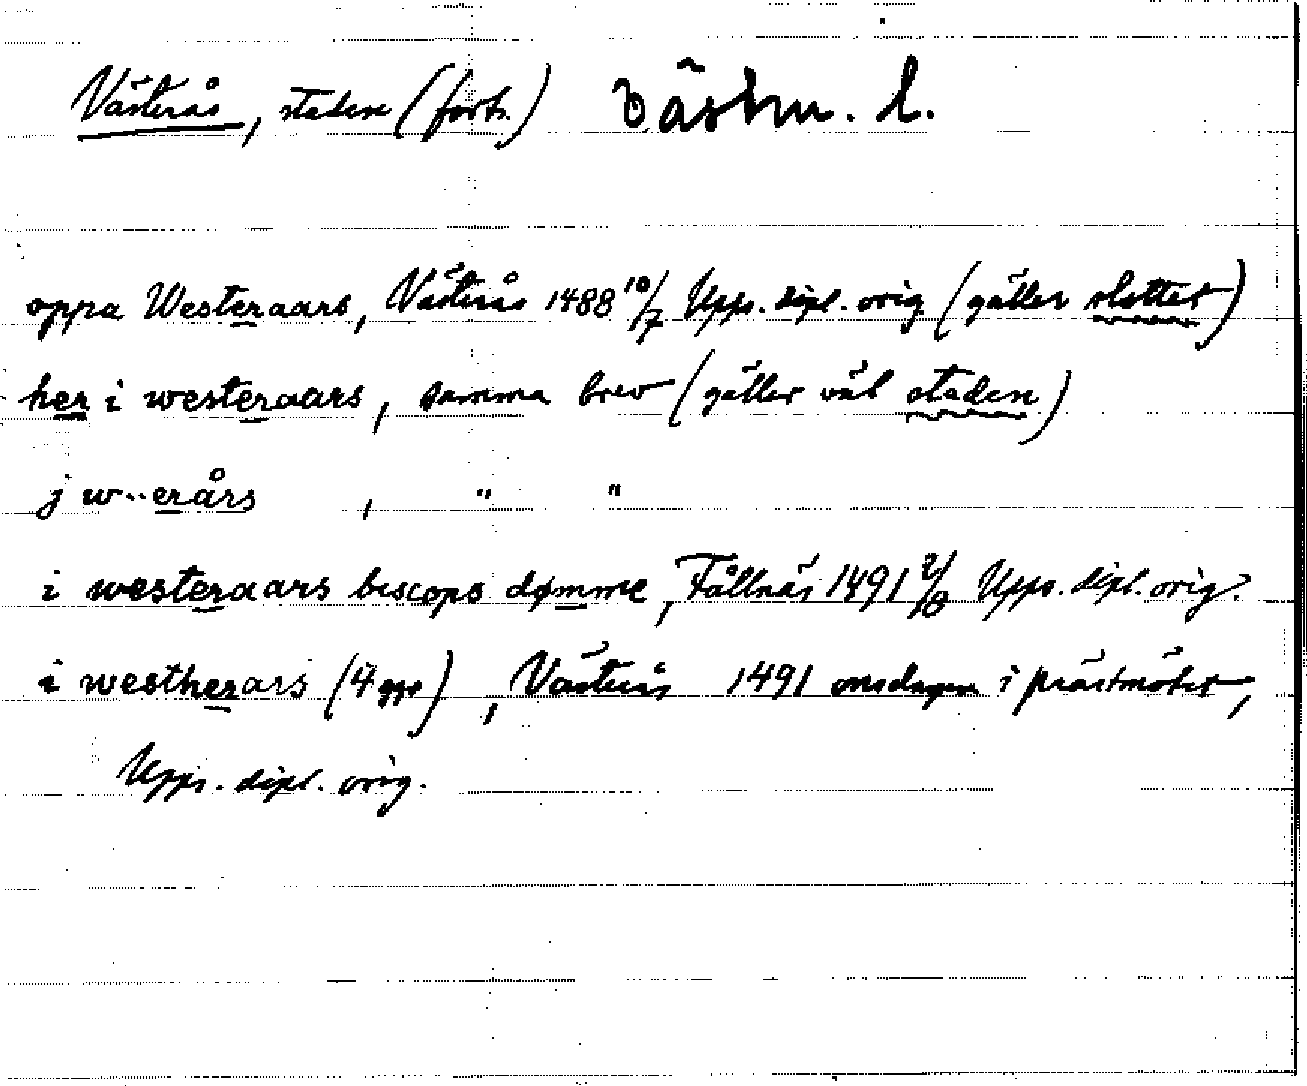 Västerås, staden (forts.) Västm. l.
oppa Westeraars, Västerås 1488 10/7 Upps. dipl. orig (gäller slottet)
her i westeraars, samma brev (gäller väl staden)
j w--erårs , " "
i westeraars biscops dømme, Fållnäs 1491 2/8 Upps. dipl. orig.
i westherars (4 ggr), Västerås 1491 onsdagen i prästmötet,
Upps. dipl. orig.